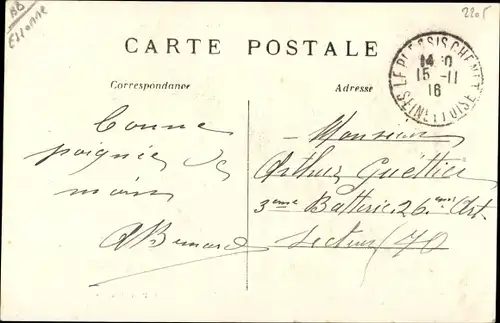 AB
Essonne
2205
CARTE POSTALE
LE PLESSIS CHENET
14 30
15 -11
16
SEINE ET OISE
Correspondance
Adresse
Bonne
poignée de
main
ABernard
Monsieur
Arthur Guettier
3ème Batterie 26ème Art.
Secteur 170